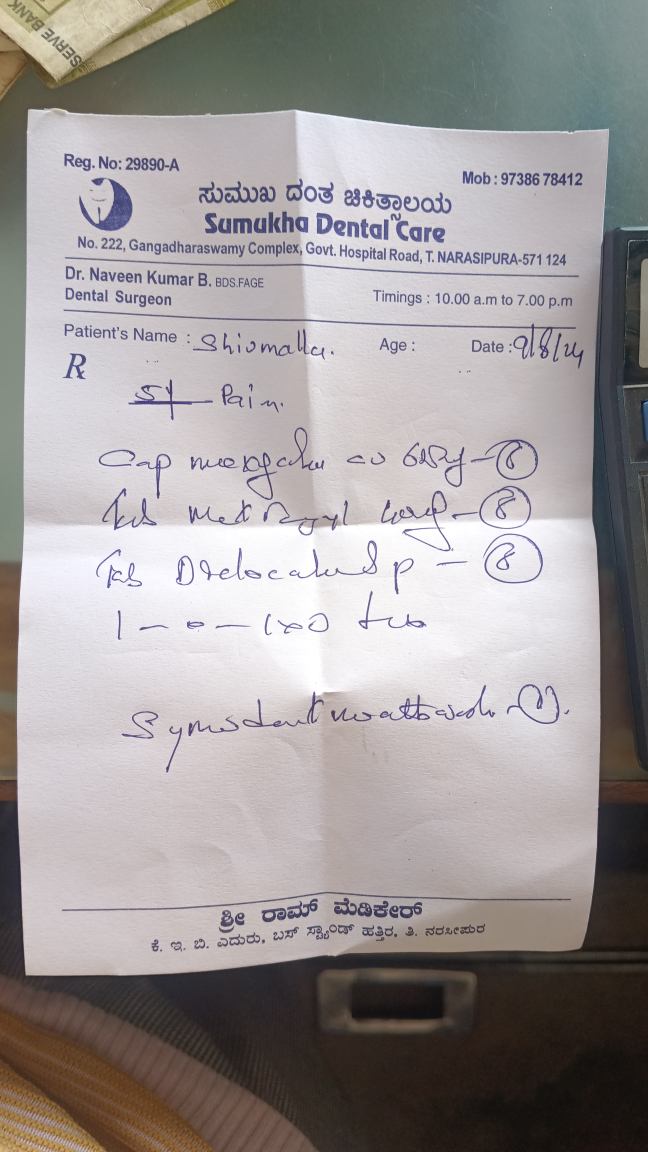 SERVE BANK
Reg. No: 29890-A
Mob : 97386 78412
ಸುಮುಖ ದಂತ ಚಿಕಿತ್ಸಾಲಯ
Sumukha Dental Care
No. 222, Gangadharaswamy Complex, Govt. Hospital Road, T. NARASIPURA-571 124
Dr. Naveen Kumar B. BDS.FAGE
Dental Surgeon
Timings : 10.00 a.m to 7.00 p.m
Patient's Name : Shivmalla.
Age :
Date : 9/8/24
R
5| Pain.
Cap - 8
Tab - 8
Tab P - 8
1 - 0 - 1 x
- 1.
ಶ್ರೀ ರಾಮ್ ಮೆಡಿಕೇರ್
ಕೆ. ಇ. ಬಿ. ಎದುರು, ಬಸ್ ಸ್ಟ್ಯಾಂಡ್ ಹತ್ತಿರ, ತಿ. ನರಸೀಪುರ